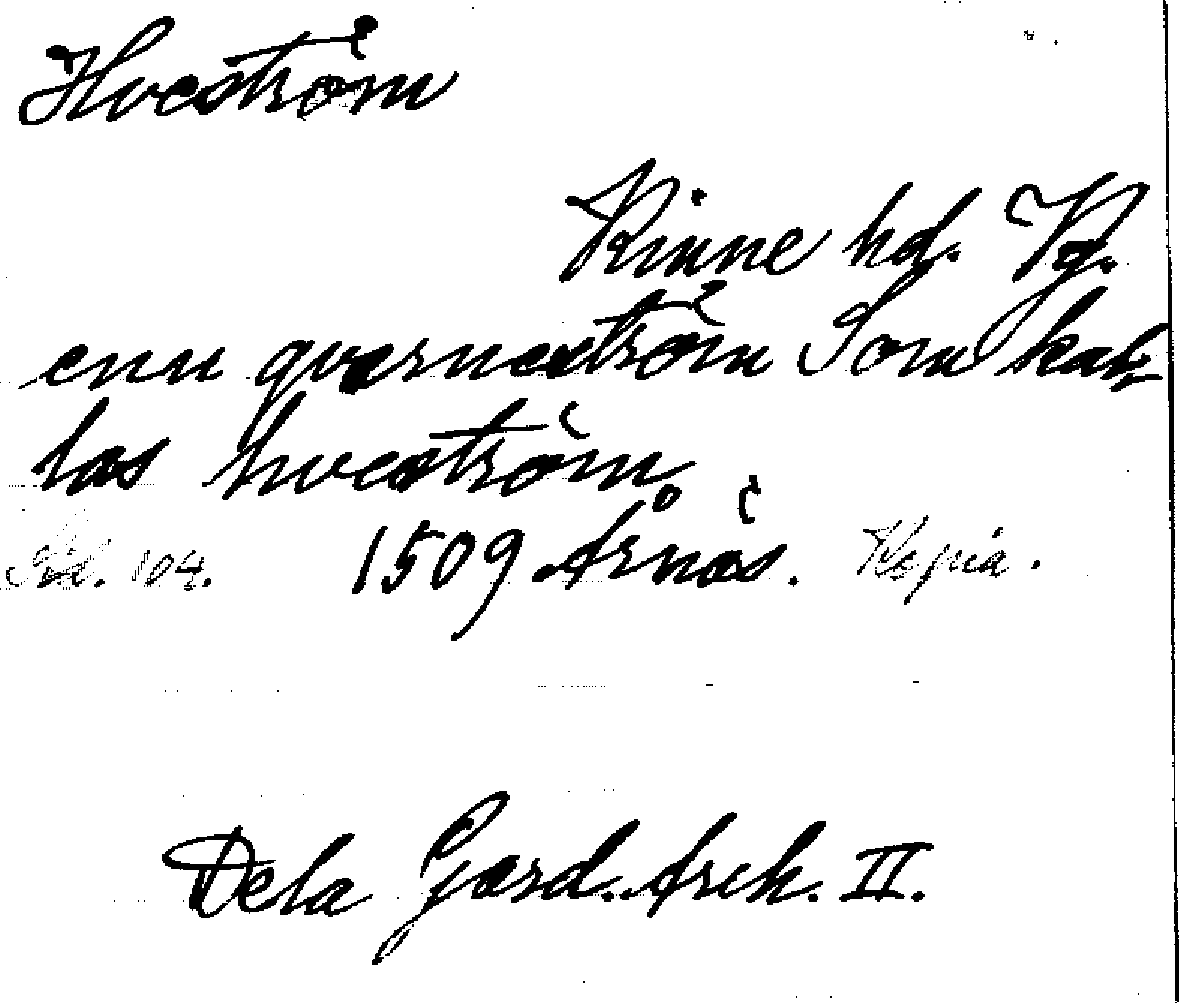 Hveström
Kinne hd. Vg.
enn qvarneström Som kal-
las hveström
Sid. 104. 1509 Årnäs. Kopia.
Dela Gard. Arch. II.